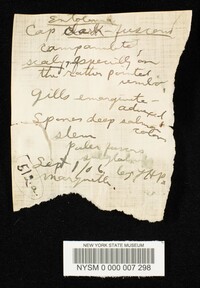 Entoloma
Cap dark-fuscous
campanulate,
scaly, especially on
the rather pointed
umbo,
Gills emarginate-
adnexed-
Spores deep salmon
color.
stem
paler fuscous
Sept 1/06. by
NEW YORK STATE MUSEUM
NYSM 0 000 007 298